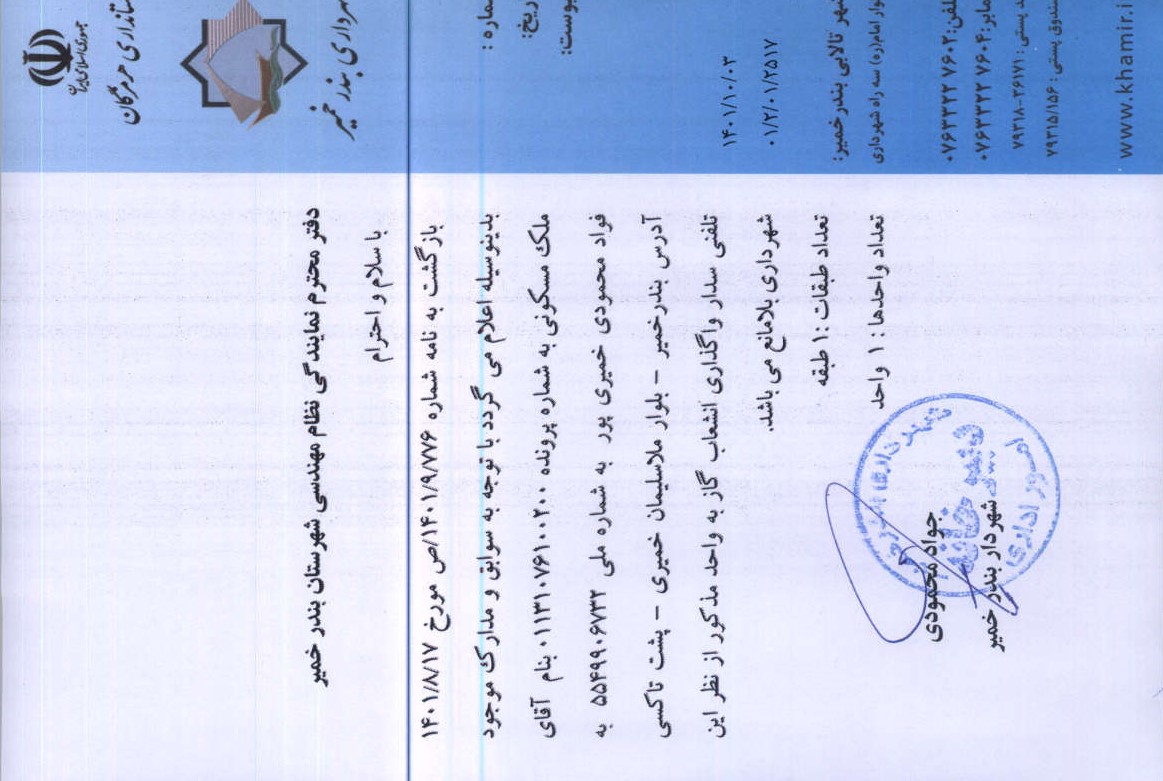 جمهوری اسلامی ایران
استانداری هرمزگان
شهرداری بندر خمیر
۱۴۰۱/۱۰/۰۳
۰۱/۲/۰۱/۲۵۱۷
دفتر محترم نمایندگی نظام مهندسی شهرستان بندر خمیر
با سلام و احترام
بازگشت به نامه شماره ۱۴۰۱/۹/۷۷۶/ص مورخ ۱۴۰۱/۸/۱۷
بدینوسیله اعلام می گردد با توجه به سوابق و مدارک موجود
ملک مسکونی به شماره پرونده ۰۱۱۳۱۰۷۶۱۰۰۲۰۰ بنام آقای
فواد مسجدی خمیری پور به شماره ملی ۵۵۴۹۹۰۶۷۳۲ به
آدرس بندرخمیر - بلوار ملاسلمان خمیری - پشت تاکسی
تلفنی ستاره واگذاری انشعاب گاز به واحد مذکور از نظر این
شهرداری بلامانع می باشد.
تعداد طبقات: ۱ طبقه
تعداد واحدها: ۱ واحد
جواد محمودی
شهردار بندر خمیر
شهر تالابی بندر خمیر:
بلوار امام(ره) سه راه شهرداری
www.khamir.i